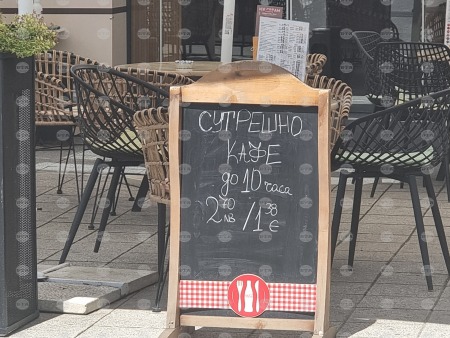 СУТРЕШНО
КАФЕ
до 10 часа
2 70 лв / 1 38 €